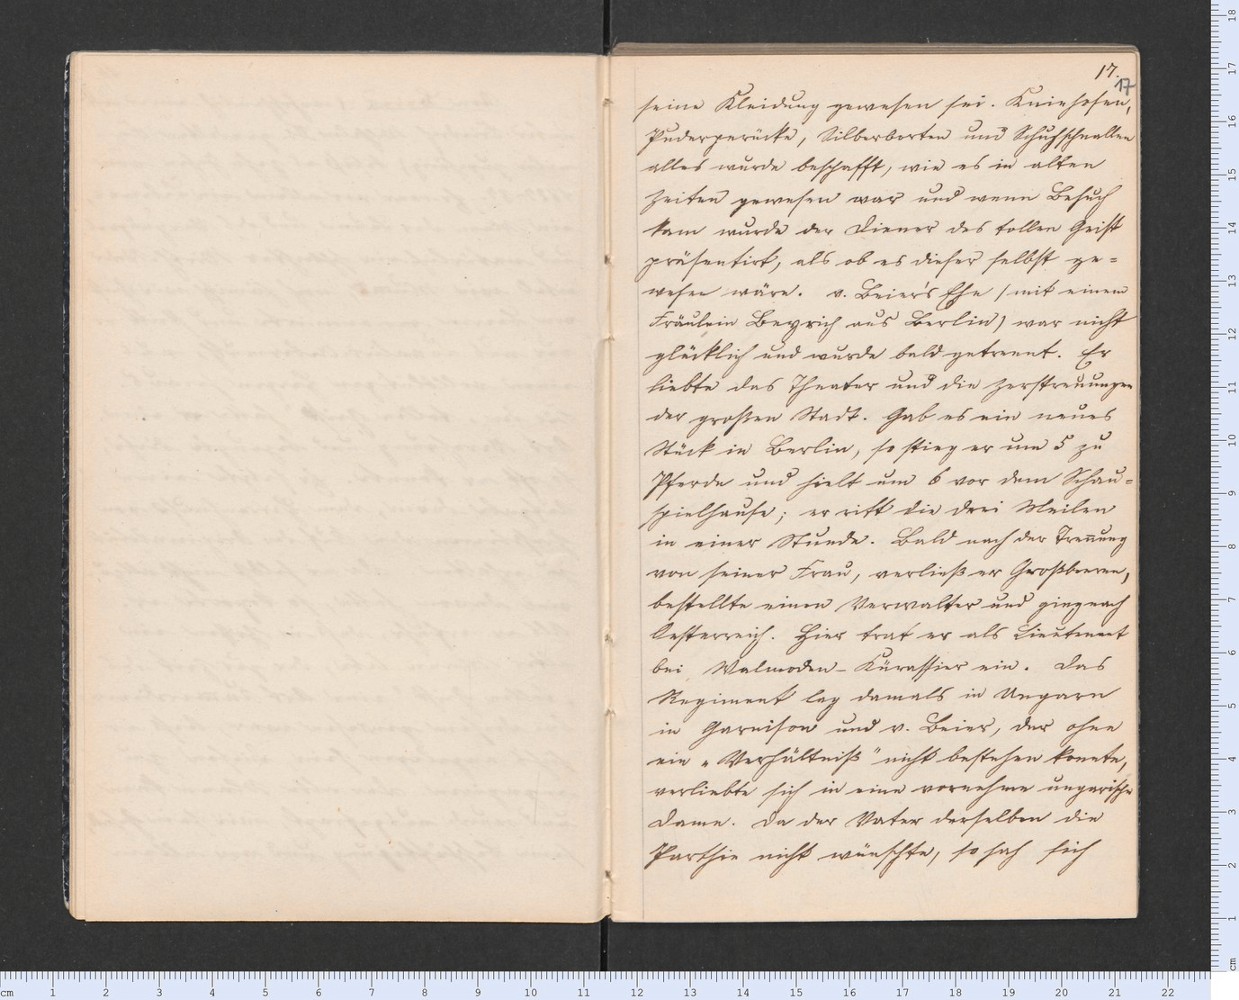 17.
17
seine Kleidung gewesen sei. Kniehosen,
Puderperücke, Silberborten und Schuhschnallen
alles wurde beschafft, wie es in alten
Zeiten gewesen war und wenn Besuch
kam wurde der Diener des tollen Geist
präsentirt, als ob es dieser selbst ge=
wesen wäre. v. Beier's Ehe (mit einem
Fräulein Beyrich aus Berlin) war nicht
glücklich und wurde bald getrennt. Er
liebte das Theater und die Zerstreuungen
der großen Stadt. Gab es ein neues
Stück in Berlin, so stieg er um 5 zu
Pferde und hielt um 6 vor dem Schau=
spielhause; er ritt die drei Meilen
in einer Stunde. Bald nach der Trennung
von seiner Frau, verließ er Großbeeren,
bestellte einen Verwalter und ging nach
Oesterreich. Hier trat er als Lieutenant
bei Walmoden-Kürassier ein. Das
Regiment lag damals in Ungarn
in Garnison und v. Beier, der ohne
ein „Verhältniß" nicht bestehen konnte,
verliebte sich in eine vornehme ungarische
Dame. Da der Vater derselben die
Parthie nicht wünschte, so sah sich